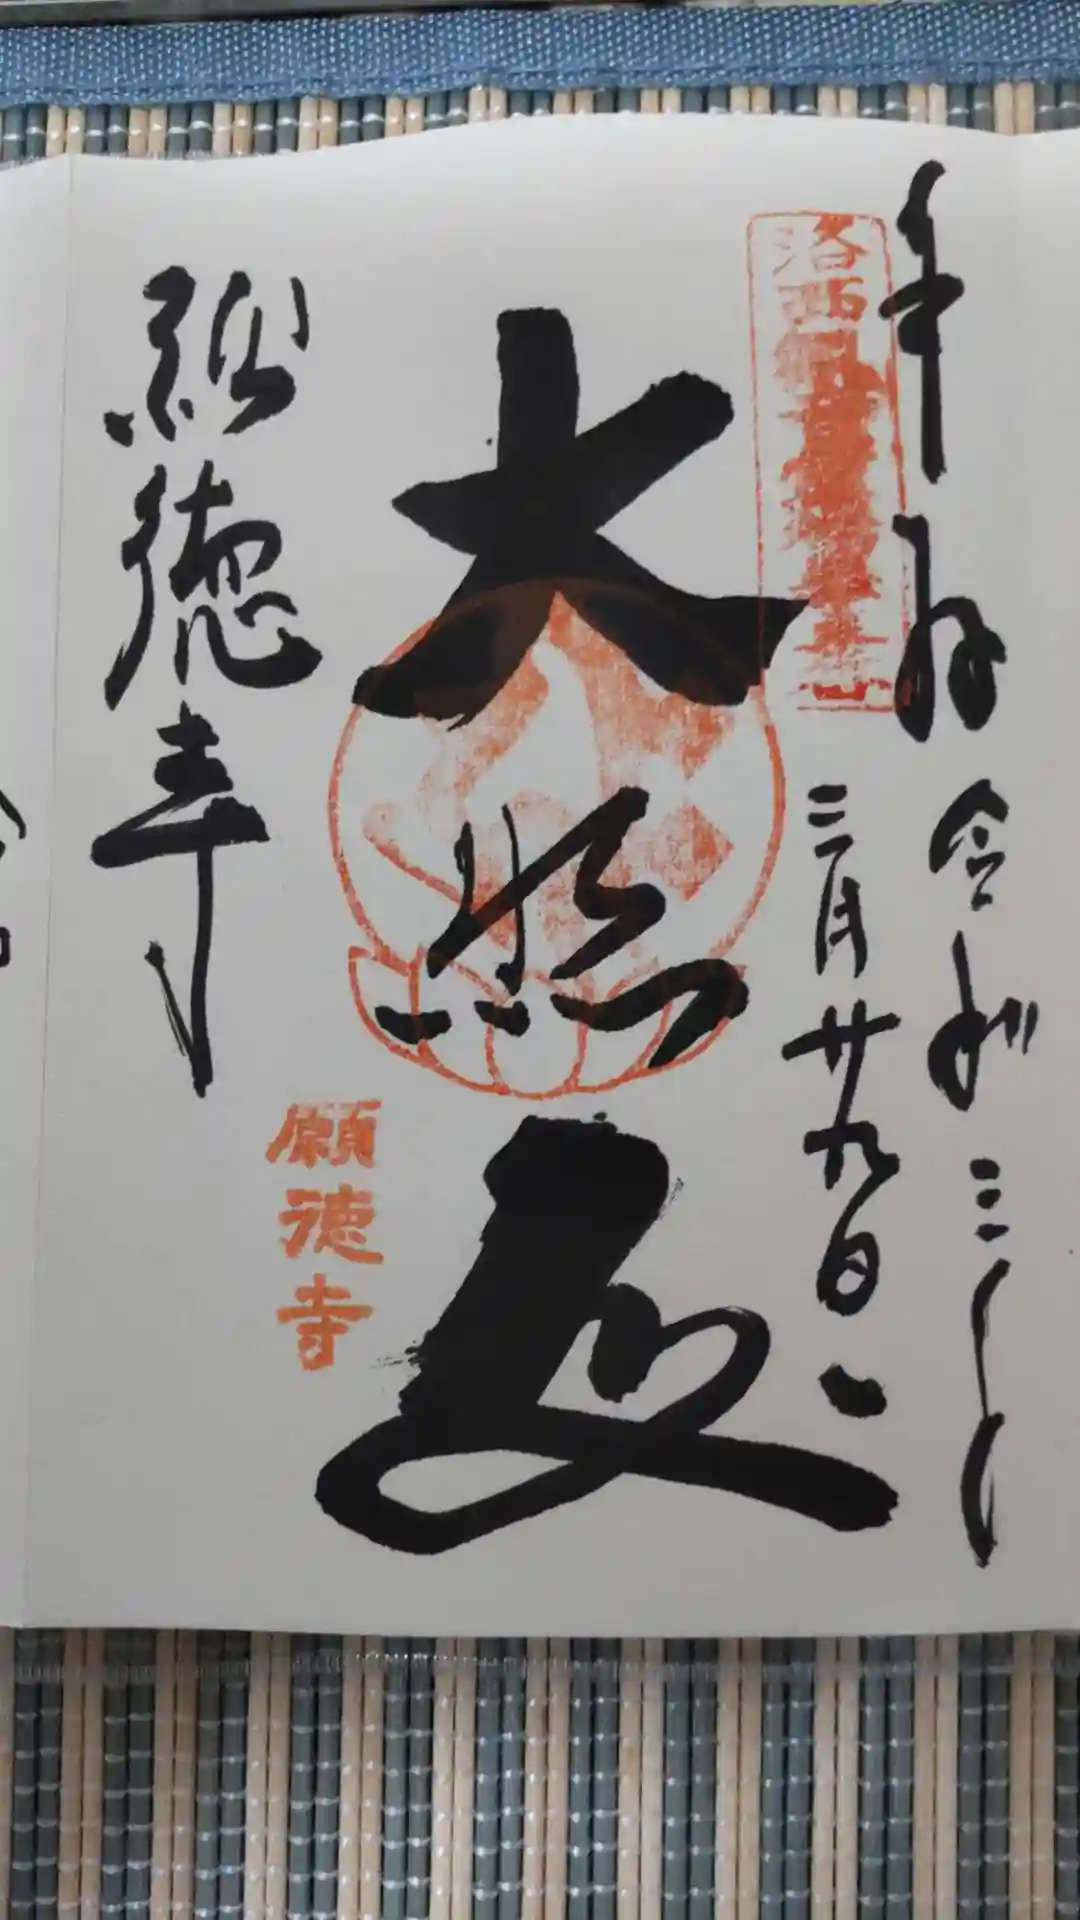 奉拝 令和三年
三月廿九日
洛西
大悲殿
願徳寺
願徳寺